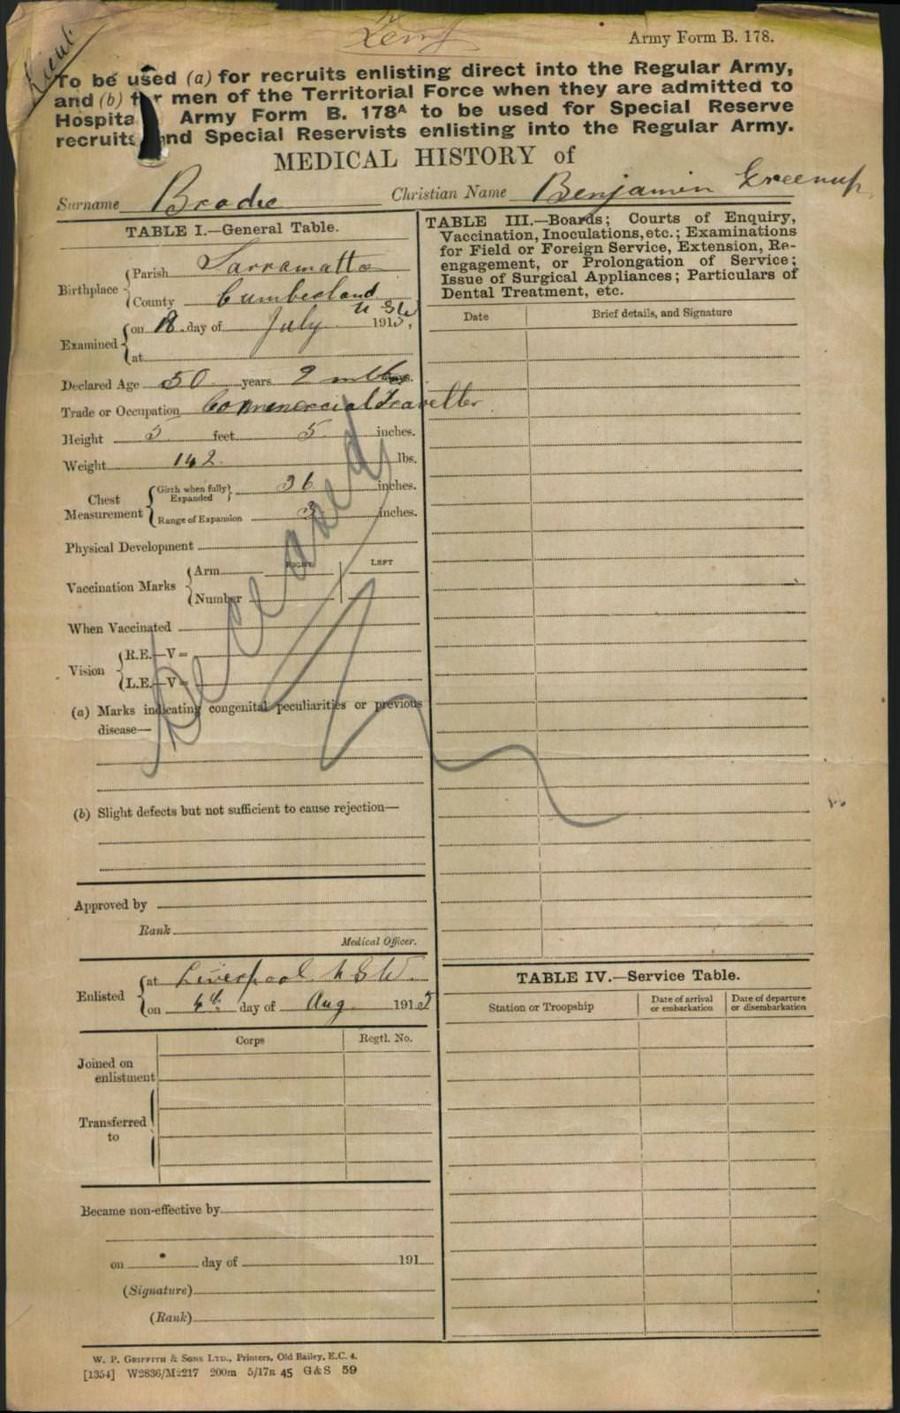 Lieut
Army Form B. 178.
To be used (a) for recruits enlisting direct into the Regular Army,
and (b) for men of the Territorial Force when they are admitted to
Hospita Army Form B. 178A to be used for Special Reserve
recruits and Special Reservists enlisting into the Regular Army.
MEDICAL HISTORY of
Surname Brodie Christian Name Benjamin Greenup
TABLE I.—General Table.
Birthplace
Parish Parramatta
County Cumberland
N SW
Examined
on 18 day of July 1915,
at
Declared Age 50 years 9 mths
Trade or Occupation Commercial Traveller
Height 5 feet 5 inches.
Weight 142 lbs.
Chest Measurement
Girth when fully Expanded 36 inches.
Range of Expansion 3 inches.
Physical Development
Vaccination Marks
RIGHT LEFT
Arm
Number
When Vaccinated
Vision
R.E.—V=
L.E.—V=
(a) Marks indicating congenital peculiarities or previous
disease—
Deceased
(b) Slight defects but not sufficient to cause rejection—
Approved by
Rank
Medical Officer.
Enlisted
at Liverpool N S W.
on 4th day of Aug 1915
Corps Regtl. No.
Joined on
enlistment
Transferred
to
Became non-effective by
on day of 191
(Signature)
(Rank)
TABLE III.—Boards; Courts of Enquiry,
Vaccination, Inoculations, etc.; Examinations
for Field or Foreign Service, Extension, Re-
engagement, or Prolongation of Service;
Issue of Surgical Appliances; Particulars of
Dental Treatment, etc.
Date Brief details, and Signature
TABLE IV.—Service Table.
Station or Troopship
Date of arrival
or embarkation
Date of departure
or disembarkation
W. P. GRIFFITH & SONS LTD., Printers, Old Bailey, E.C. 4.
[1354] W2836/M2217 200m 5/17R 45 G&S 59